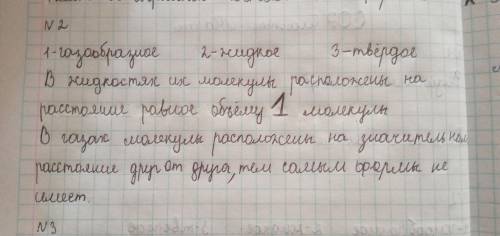 N2
1-газообразное 2-жидкое 3-твёрдое
В жидкостях их молекулы расположены на
расстояние равное объёму 1 молекулы
В газах молекулы расположены на значительном
расстояние друг от друга, тем самым формы не
имеет.
N3